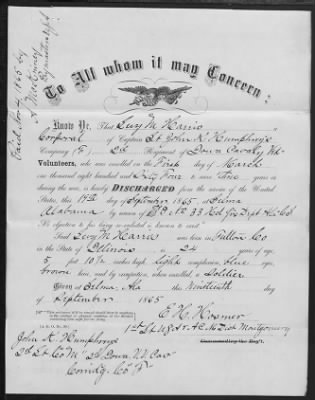 Paid Nov 4, 1865 by
Paymaster
To All whom it may Concern:
Know Ye, That Levy M Harris
Corporal of Captain Lt John K. Humphrys
Company (F) 2d Regiment of Iowa Cavalry Vet
Volunteers, who was enrolled on the First day of March
one thousand eight hundred and Sixty Four to serve Three years or
during the war, is hereby DISCHARGED from the service of the United
States, this 19th day of September 1865, at Selma
Alabama by reason of
No objection to his being re-enlisted is known to exist.
Said Levy M Harris was born in Fulton Co
in the State of Illinois, is 24 years of age,
5 feet 10½ inches high, Light complexion, blue eyes,
brown hair, and by occupation, when enrolled, a Soldier
Given at Selma, Ala this Nineteenth day
of September 1865
E. H. Hosmer
Montgomery
Commanding the Reg't.
John K. Humphrys
2d Iowa Cav
Comdg. Co